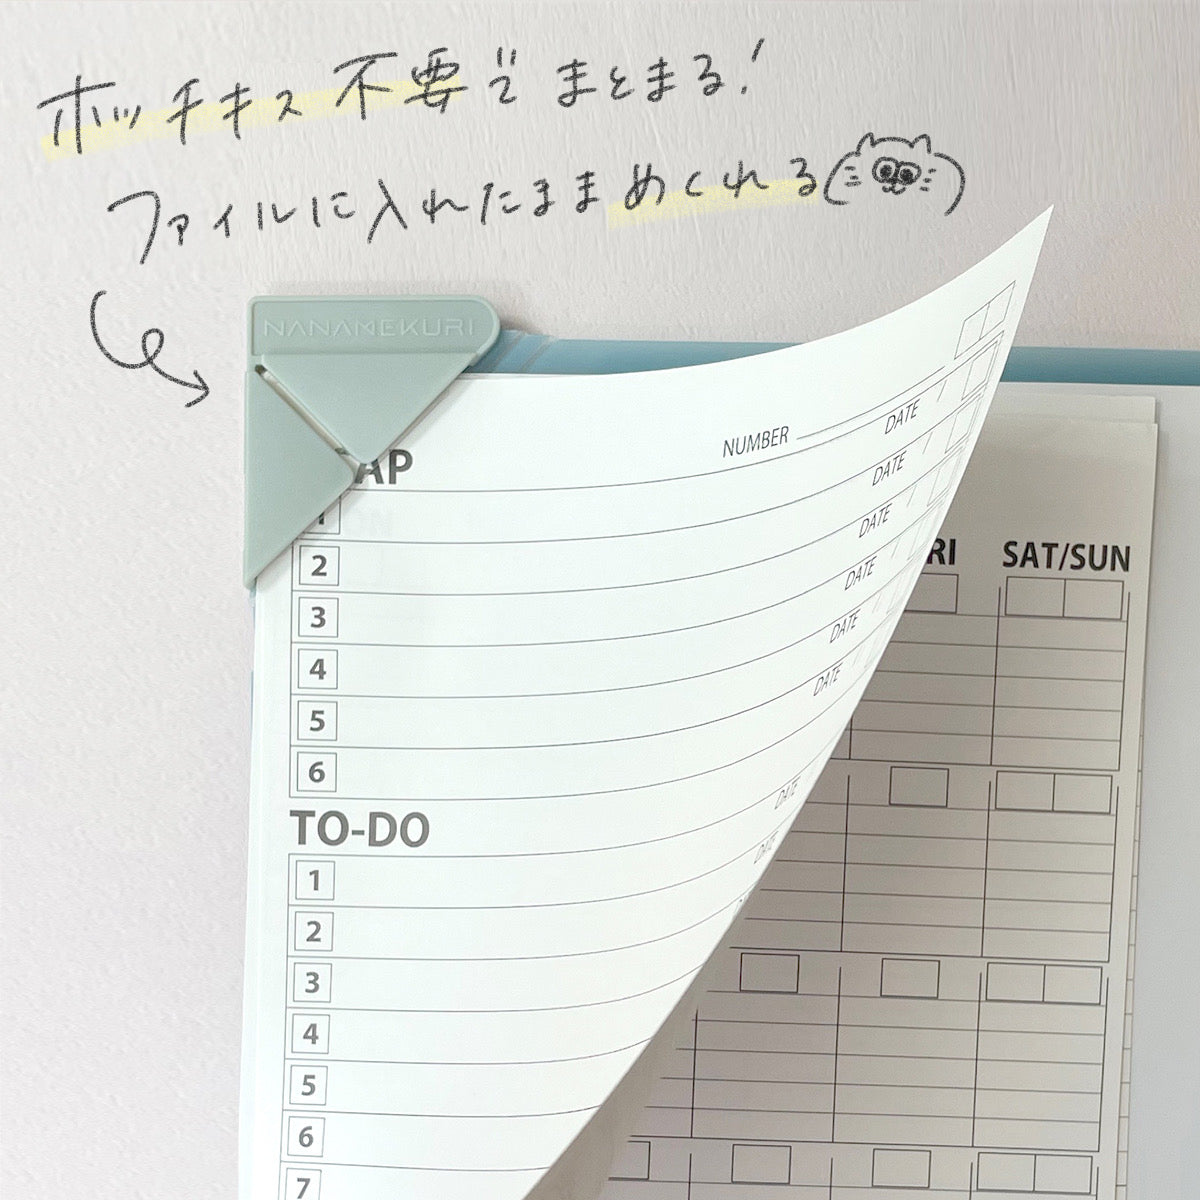 ホッチキス不要でまとまる!
ファイルに入れたままめくれる
NANAMEKURI
AP
NUMBER
DATE /
1
DATE /
2
DATE /
3
DATE /
4
DATE /
5
DATE
6
DATE
TO-DO
DATE
1
DATE
2
3
4
5
6
7
RI
SAT/SUN